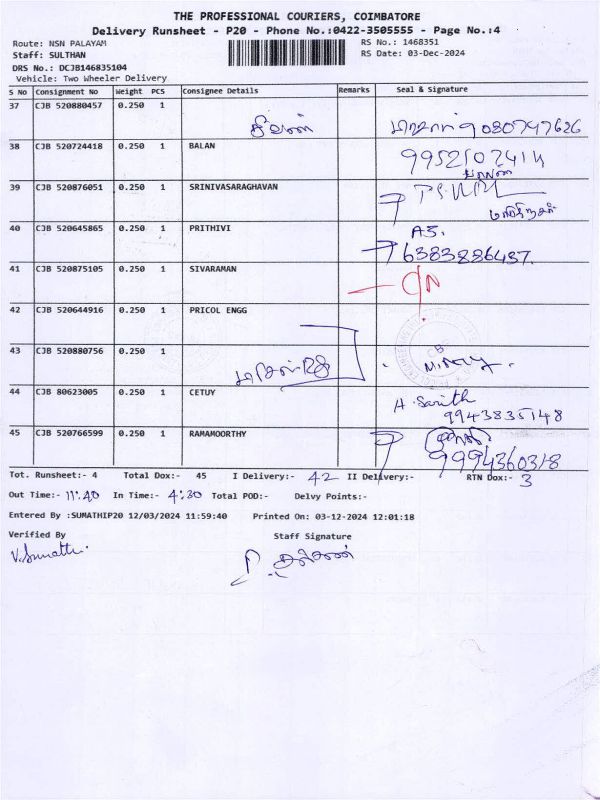 THE PROFESSIONAL COURIERS, COIMBATORE
Delivery Runsheet - P20 - Phone No.:0422-3505555 - Page No.:4
Route: NSN PALAYAM
RS No.: 1468351
Staff: SULTHAN
RS Date: 03-Dec-2024
DRS No.: DCJB146835104
Vehicle: Two Wheeler Delivery
S No Consignment No Weight PCS Consignee Details Remarks Seal & Signature
37 CJB 520880457 0.250 1
9080747626
38 CJB 520724418 0.250 1 BALAN
9952107414
39 CJB 520876051 0.250 1 SRINIVASARAGHAVAN
40 CJB 520645865 0.250 1 PRITHIVI
6383886437.
41 CJB 520875105 0.250 1 SIVARAMAN
42 CJB 520644916 0.250 1 PRICOL ENGG
43 CJB 520880756 0.250 1
44 CJB 80623005 0.250 1 CETUY
9943835148
45 CJB 520766599 0.250 1 RAMAMOORTHY
9994360318
Tot. Runsheet:- 4 Total Dox:- 45 I Delivery:- 42 II Delivery:- RTN Dox:- 3
Out Time:- 11.40 In Time:- 4.30 Total POD:- Delvy Points:-
Entered By :SUMATHIP20 12/03/2024 11:59:40 Printed On: 03-12-2024 12:01:18
Verified By Staff Signature
V.Sumathi.